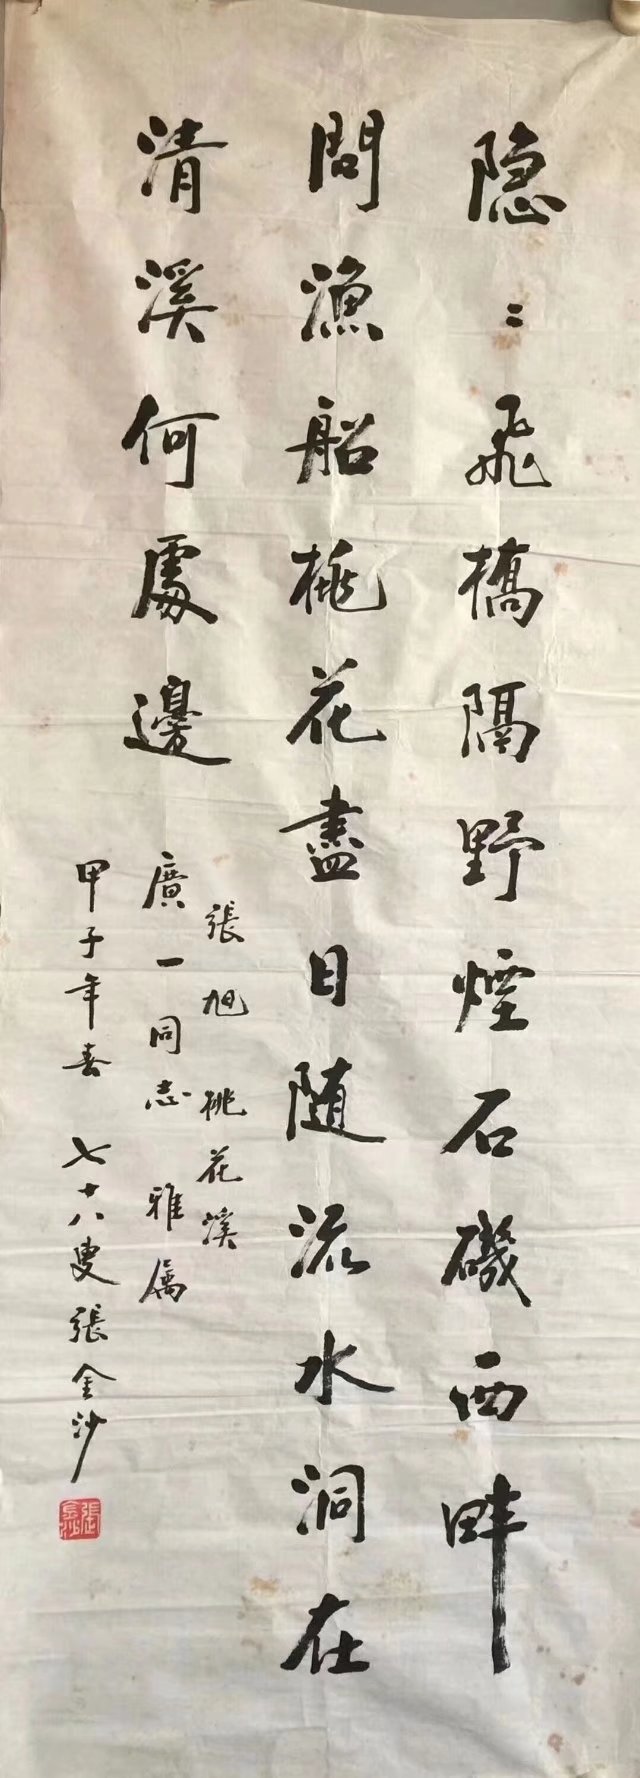 隐〻飛橋隔野煙石磯西畔
問漁船桃花盡日随流水洞在
清溪何處邊
張旭桃花溪
廣一同志 雅属
甲子年春 七十八叟張金沙